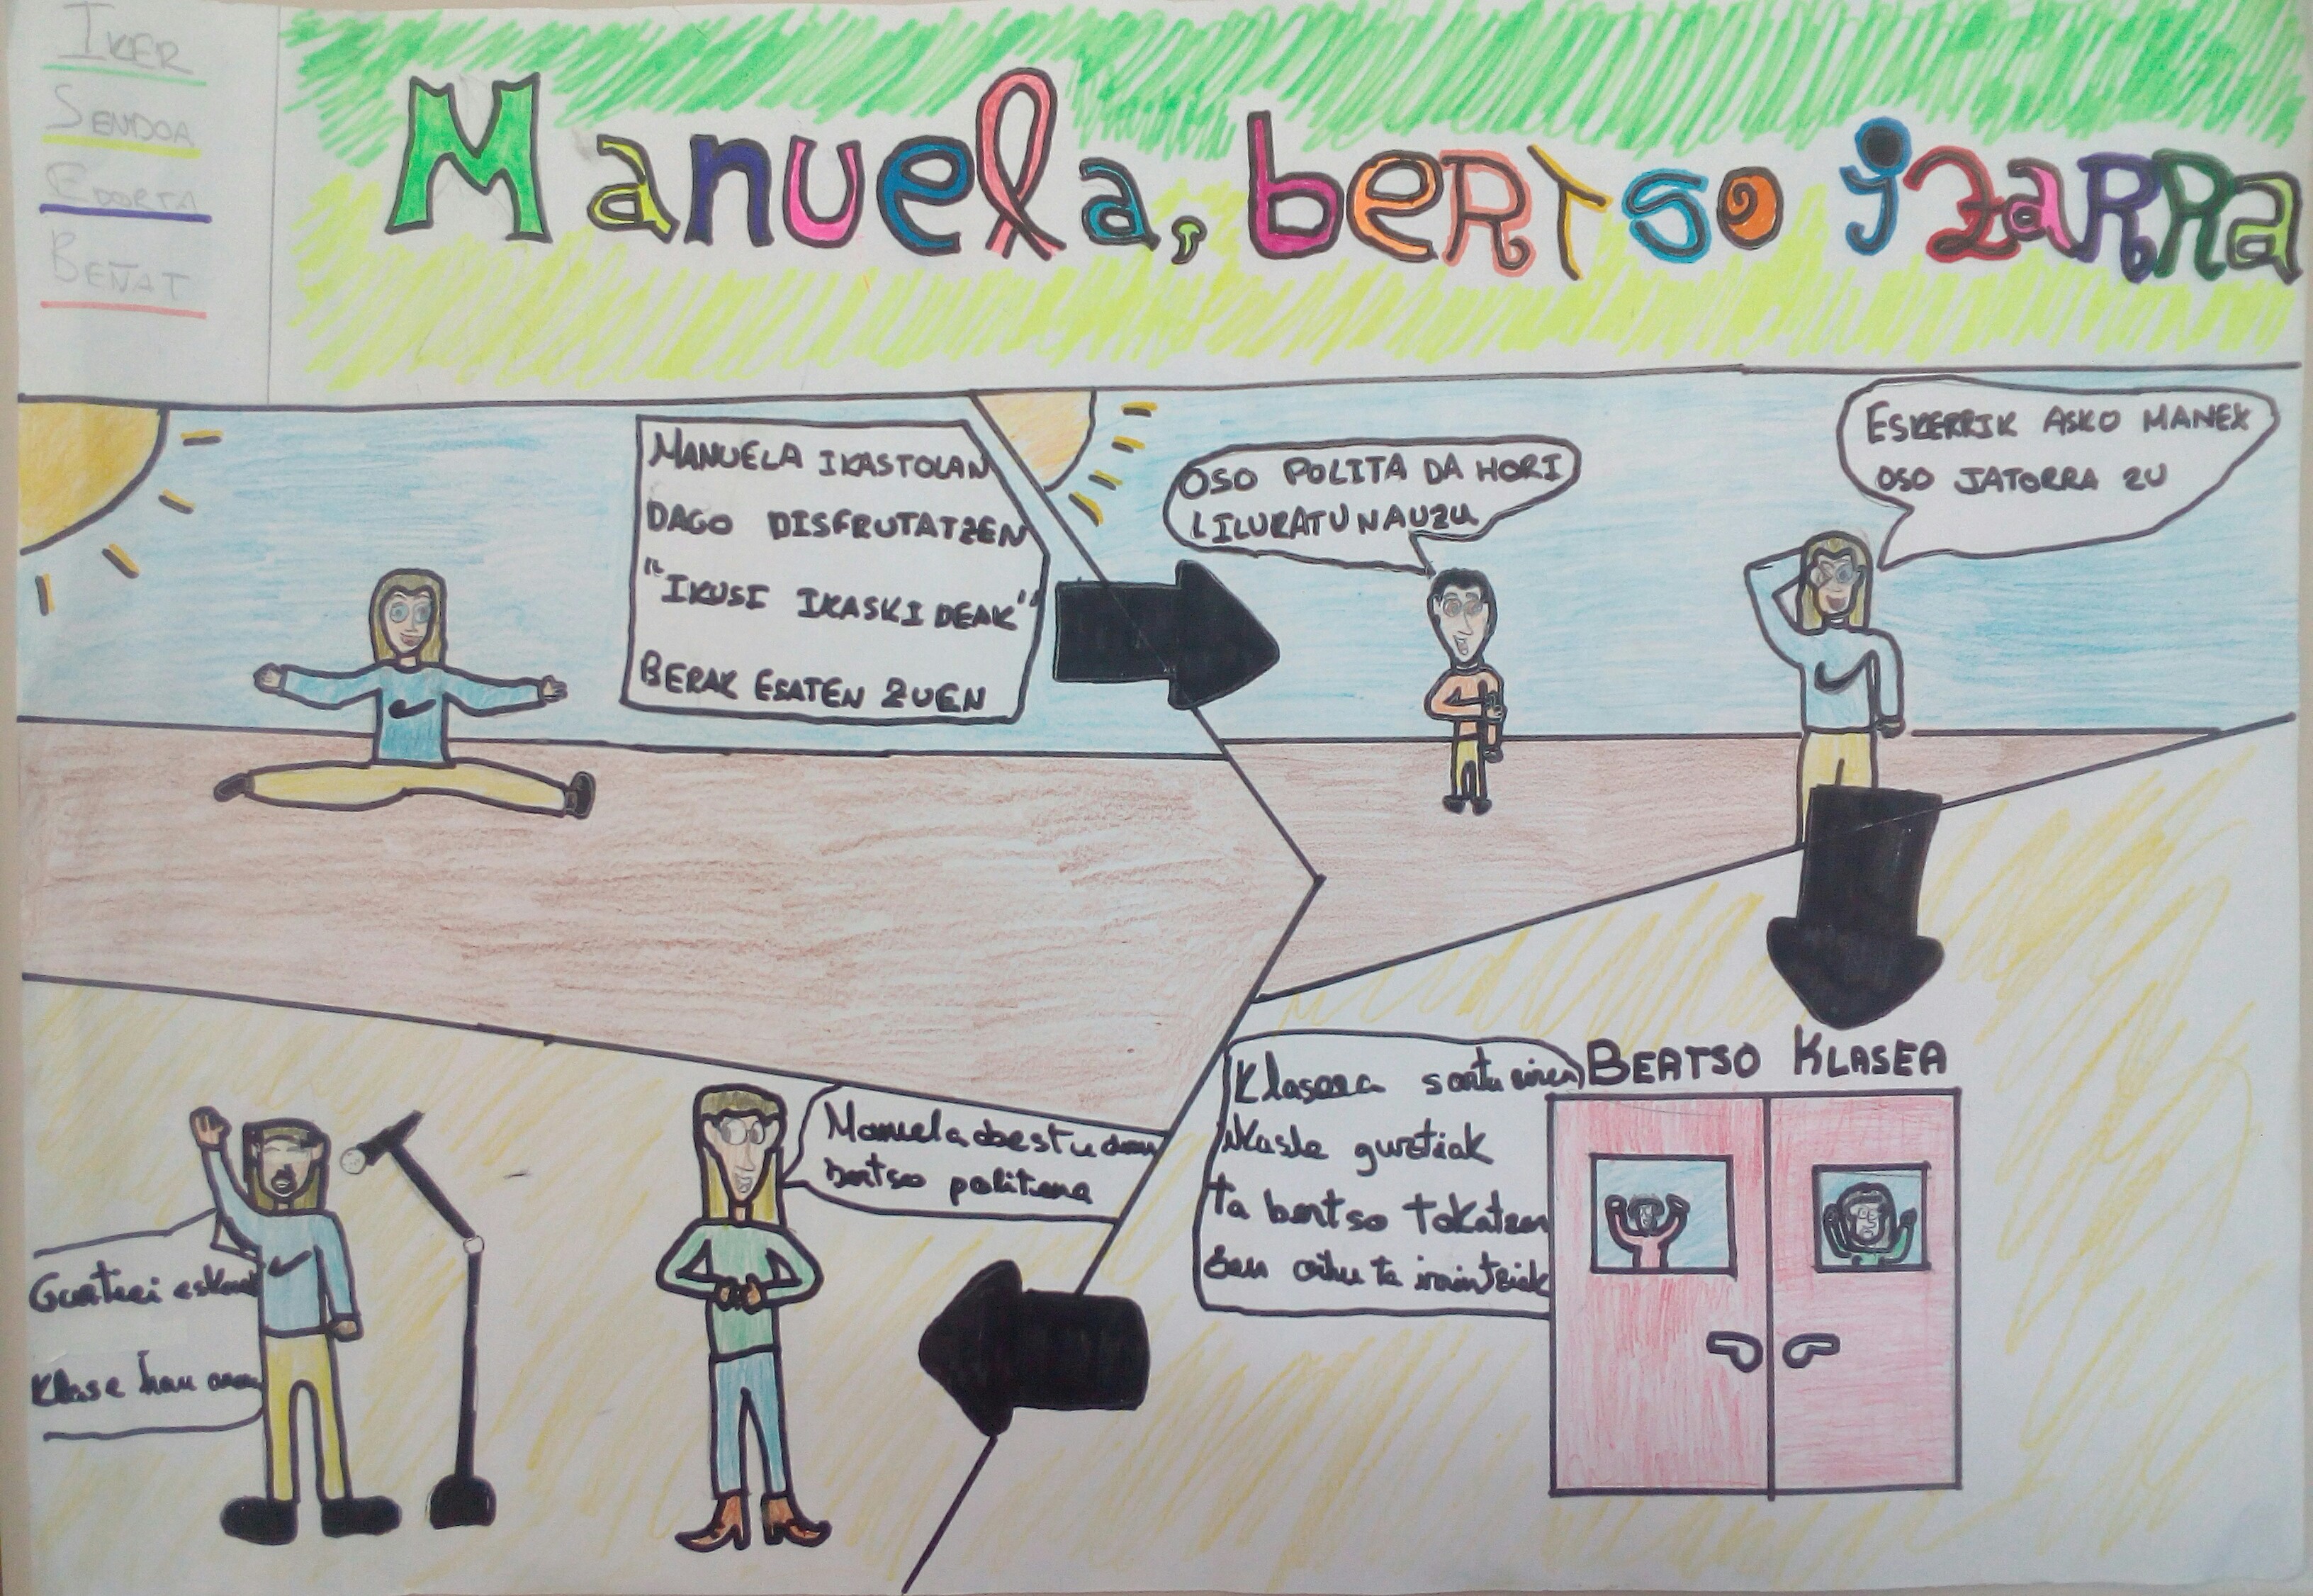 IKER
SENDOA
EDORTA
BEÑAT
Manuela, bertso izarra
MANUELA IKASTOLAN
DAGO DISFRUTATZEN
"IKUSI IKASKIDEAK"
BERAK ESATEN ZUEN
OSO POLITA DA HORI
LILURATU NAUZU
ESKERRIK ASKO MANEX
OSO JATORRA ZU
BERTSO KLASEA
Klasera sartu ziren
ikasle guztiak
ta bertso tokatzen
zen oihu ta irrintziak
Manuela abestu dezu
bertso politena
Guztiei
Klase hau